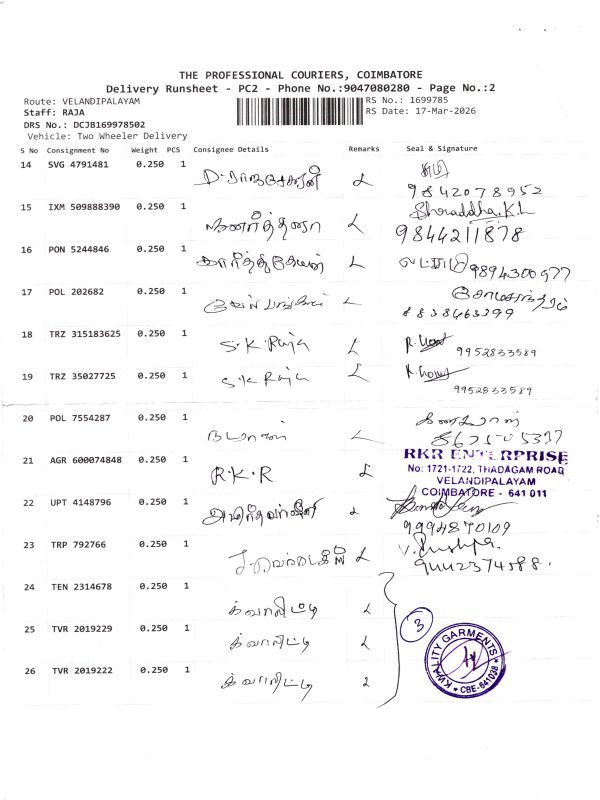 THE PROFESSIONAL COURIERS, COIMBATORE
Delivery Runsheet - PC2 - Phone No.:9047080280 - Page No.:2
Route: VELANDIPALAYAM
RS No.: 1699785
Staff: RAJA
RS Date: 17-Mar-2026
DRS No.: DCJB169978502
Vehicle: Two Wheeler Delivery
S No Consignment No Weight PCS Consignee Details Remarks Seal & Signature
14 SVG 4791481 0.250 1 L
9842078952
15 IXM 509888390 0.250 1 L Shraddha.K.L
9844211878
16 PON 5244846 0.250 1 கார்த்திகேயன் L 9894300977
17 POL 202682 0.250 1 L
8838463299
18 TRZ 315183625 0.250 1 S.K.Raja L
9952833589
19 TRZ 35027725 0.250 1 S.K Raja L
9952833589
20 POL 7554287 0.250 1 L
21 AGR 600074848 0.250 1 R.K.R L
RKR ENTERPRISE
No: 1721-1722, THADAGAM ROAD
VELANDIPALAYAM
COIMBATORE - 641 011
22 UPT 4148796 0.250 1 L
9994870109
23 TRP 792766 0.250 1 L V. Pushpa
24 TEN 2314678 0.250 1 க்வாலிட்டி L
25 TVR 2019229 0.250 1 க்வாலிட்டி L
26 TVR 2019222 0.250 1 க்வாலிட்டி L
3
KWALITY GARMENTS
* CBE-641038 *